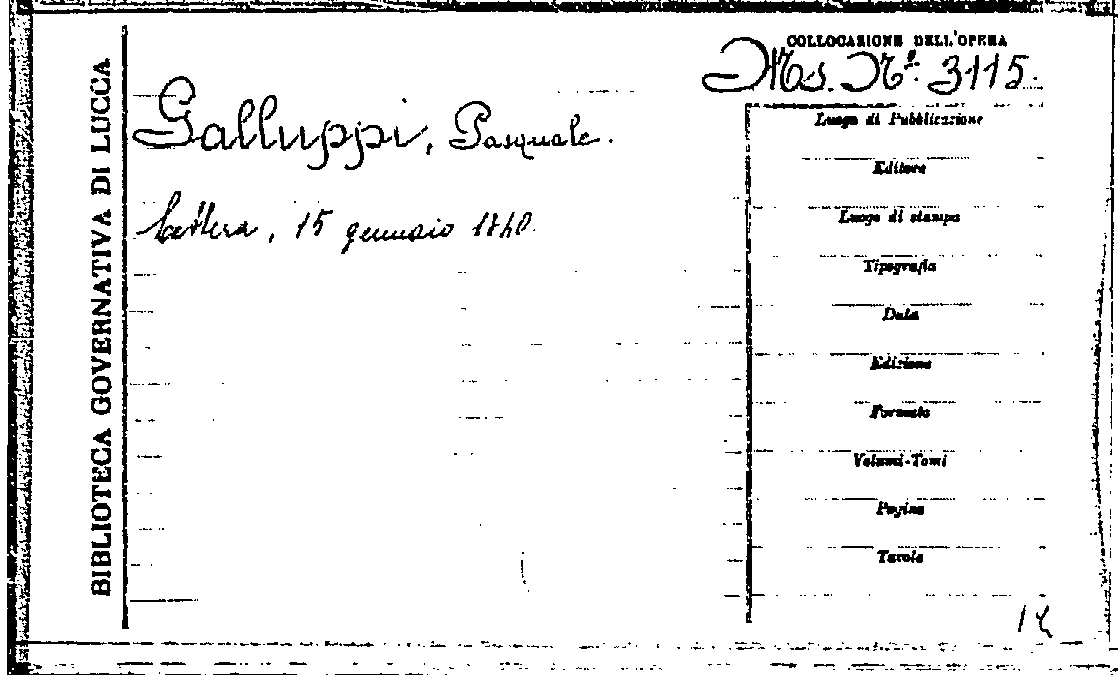 BIBLIOTECA GOVERNATIVA DI LUCCA
COLLOCAZIONE DELL'OPERA
Ms. Nº. 3115.
Galluppi, Pasquale.
Lettera, 15 gennaio 1840.
Luogo di Pubblicazione
Editore
Luogo di stampa
Tipografia
Data
Edizione
Formato
Volumi-Tomi
Pagine
Tavole